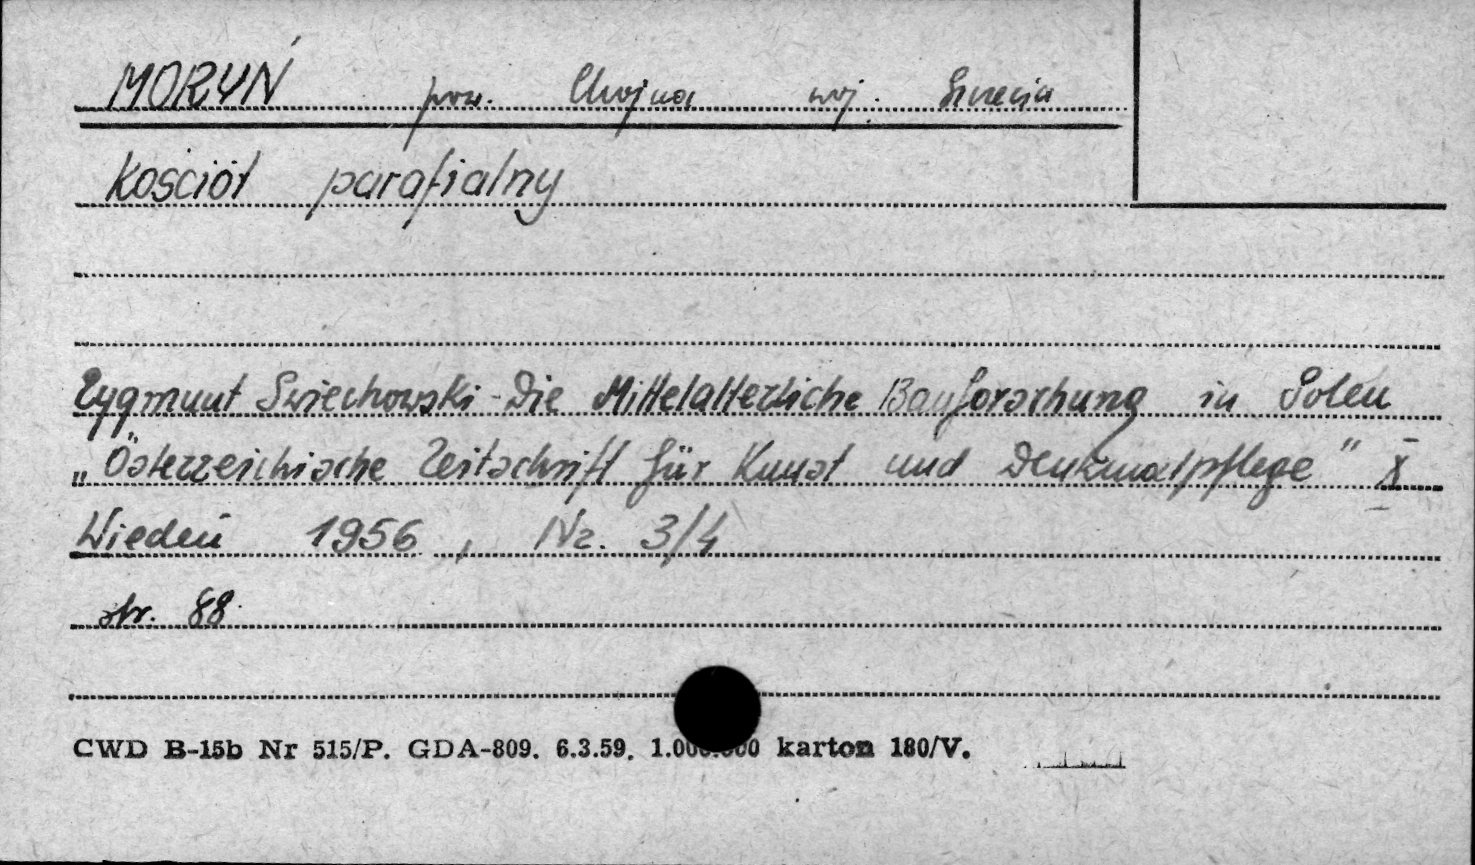 MORYŃ pow. Chojna woj. Szczecin
Kościół parafialny
Zygmunt Świechowski - Die Mittelalterliche Bauforschung in Polen
„Österreichische Zeitschrift für Kunst und Denkmalpflege" X
Wiedeń 1956, Nr. 3/4
str. 88
CWD B-15b Nr 515/P. GDA-809. 6.3.59. 1.000.000 karton 180/V.